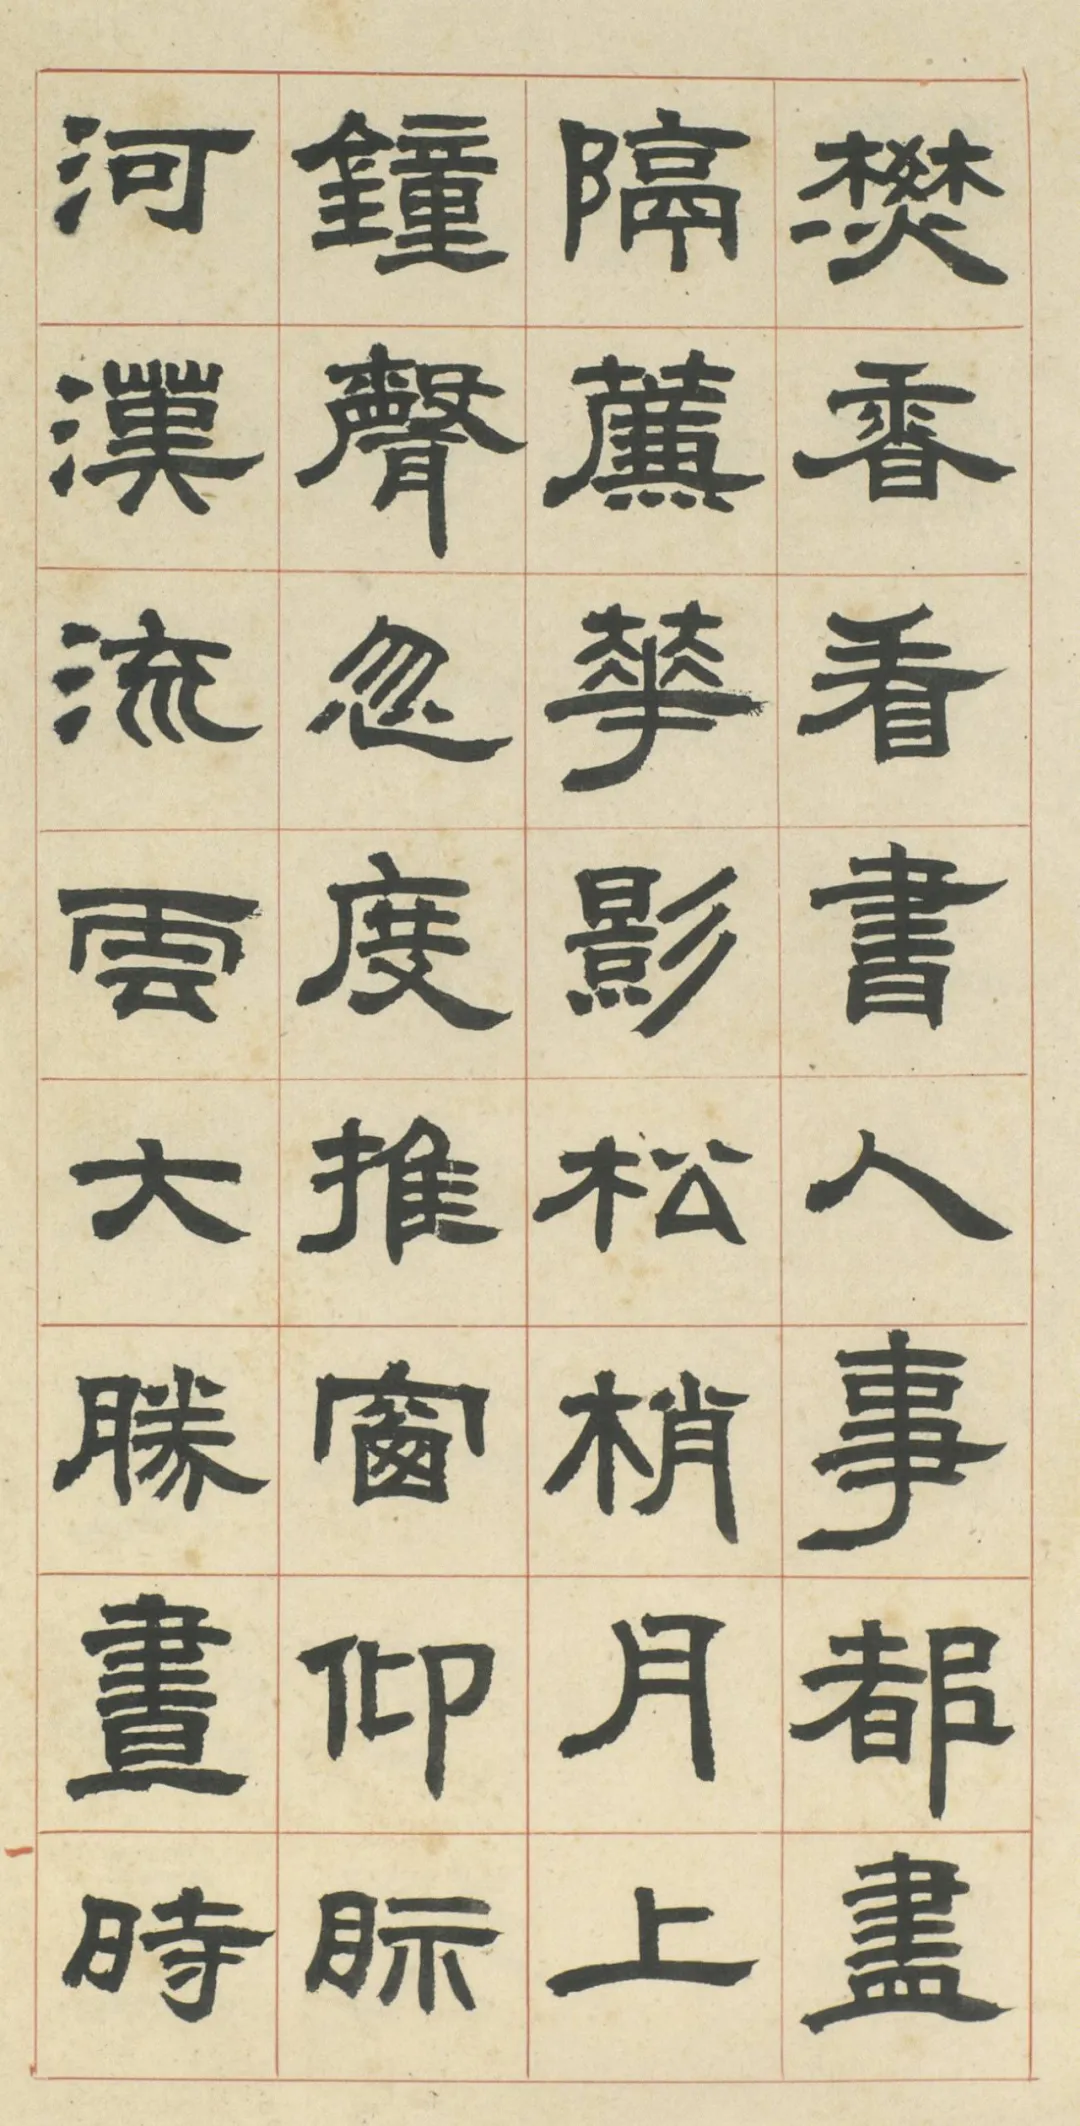 燓香看書人事都盡
隔薕華影松梢月上
鐘聲忽度推窗仰眎
河漢流雲大勝晝時